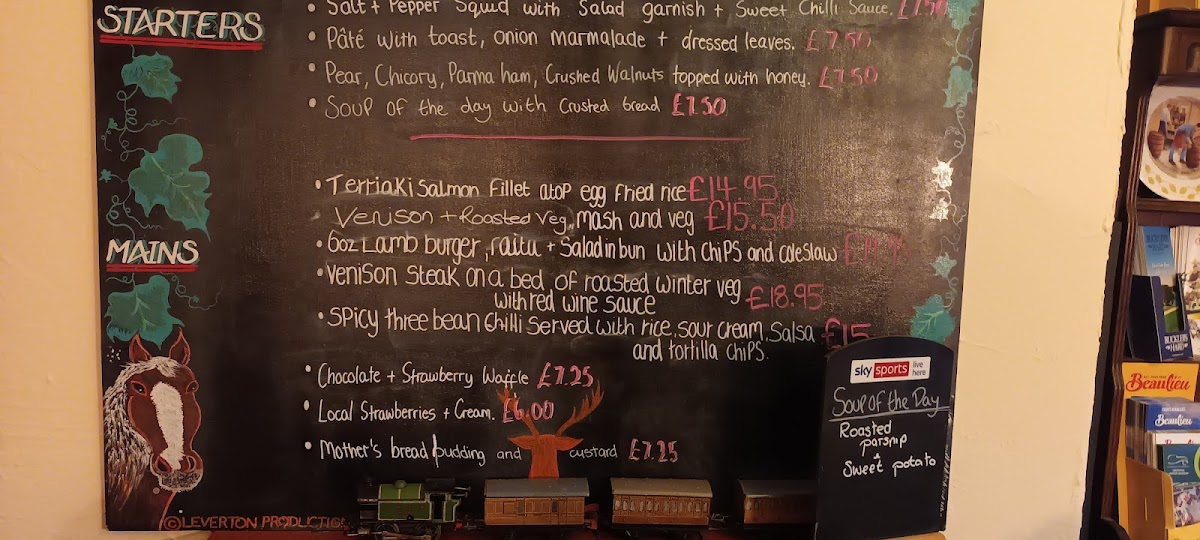 STARTERS
• Salt + Pepper Squid with Salad garnish + Sweet Chilli Sauce. £7.50
• Pâté with toast, onion marmalade + dressed leaves. £7.50
• Pear, Chicory, Parma ham, Crushed Walnuts topped with honey. £7.50
• Soup of the day with Crusted bread £7.50
MAINS
• Terriaki Salmon Fillet atop egg fried rice £14.95
Venison + Roasted Veg, mash and veg £15.50
• 6oz Lamb burger, raitu + Salad in bun with chips and coleslaw
• Venison Steak on a bed of roasted winter veg
with red wine sauce £18.95
• Spicy three bean Chilli Served with rice, sour cream, Salsa £15
and tortilla chips.
• Chocolate + Strawberry Waffle £7.25
• Local Strawberries + Cream. £6.00
• Mother's bread pudding and custard £7.25
©LEVERTON PRODUCTIO
sky sports live here
Soup of the Day
Roasted
parsnip
+
Sweet potato
BUCKLERS HARD
Beaulieu
Beaulieu
Beaulieu